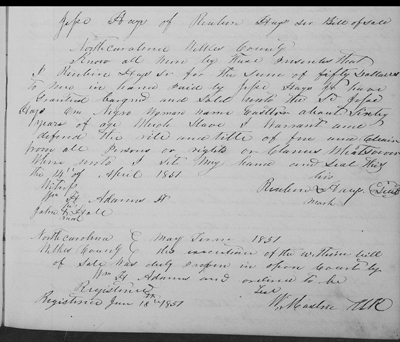 Jesse Hays of Reuben Hays Sr Bill of sale
North carolina Wilkes County
Know all men by these presents that
I Reuben Hays Sr for the sum of fifty Dollars
to me in hand paid by Jesse Hays Jr have
bargind and sold unto the Sd Jesse
Hays One Negro Woman Name about Sixty
years of age Slave I warrant and
defend the rite and title of from and Claim
from all Persons or rights or Claims Whatsoever
Where unto I set my hand and Seal this
the 14th of April 1851
Witness his
Wm H Adams Reuben Hays Seal
John Hall mark
mark
North carolina May Term 1851
Wilkes County the execution of the within bill
of Sale was duly proven in open Court by
Wm H Adams and ordered to be
Registered
Registered June 14th 1851 W Mastin Clk